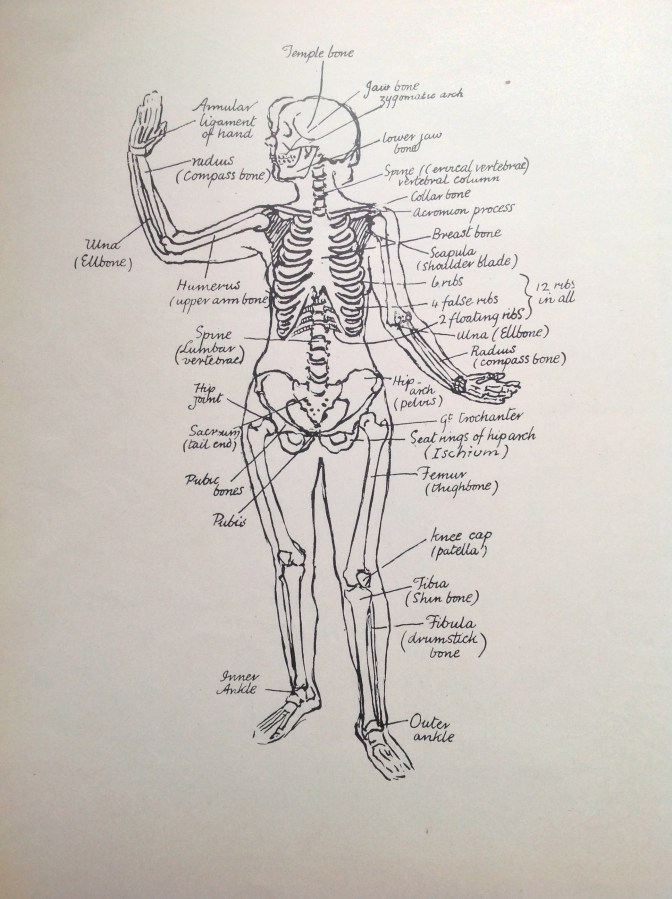 Temple bone
Jaw bone
zygomatic arch
Annular
ligament
of hand
lower jaw
bone
radius
(Compass bone)
Spine (Cervical vertebrae)
vertebral column
Collar bone
Acromion process
Ulna
(Ellbone)
Breast bone
Scapula
(shoulder blade)
Humerus
(upper arm bone)
6 ribs
4 false ribs
2 floating ribs
12 ribs
in all
Ulna (Ellbone)
Radius
(compass bone)
Spine
(Lumbar
vertebrae)
Hip
joint
Hip-
arch
(pelvis)
Sacrum
(tail end)
Gt Trochanter
Seat rings of hip arch
(Ischium)
Pubic
bones
Femur
(thighbone)
Pubis
knee cap
(patella)
Tibia
(Shin bone)
Fibula
(drumstick)
bone
Inner
Ankle
Outer
ankle